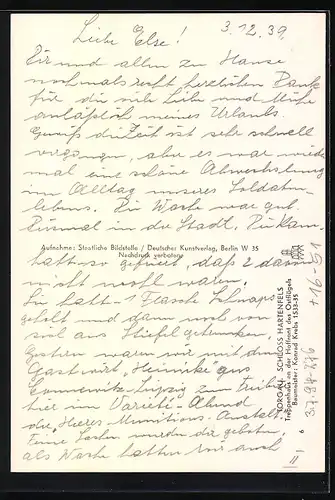 3.12.39.
Liebe Else!
Dir und allen zu Hause
nochmals recht herzlichen Dank
für die viele Liebe und Mühe
anläßlich meines Urlaubs.
Gewiß die Zeit ist sehr schnell
vergangen, aber es war wieder
mal eine schöne Abwechslung
im Alltag unseres Soldaten-
lebens. Die Wache war gut.
in die Stadt. Die
Aufnahme: Staatliche Bildstelle / Deutscher Kunstverlag, Berlin W 35
Nachdruck verboten
hatten so gefeiert, daß 2 davon
nicht wohl waren.
Sie hatten 1 Flasche Schnaps
geholt und dann noch
viel aus Stiefel getrunken.
Gestern waren wir mit dem
Gastwirt, aus
Leipzig zum
hier im Varieté-Abend
der Heeres-Munitions-Anstalt.
Feine Sachen wurden da geboten,
als Wache hatten wir auch
II
TORGAU. SCHLOSS HARTENFELS
Treppenhaus an der Hoffront des Ostflügels
Baumeister: Konrad Krebs 1533-35
6